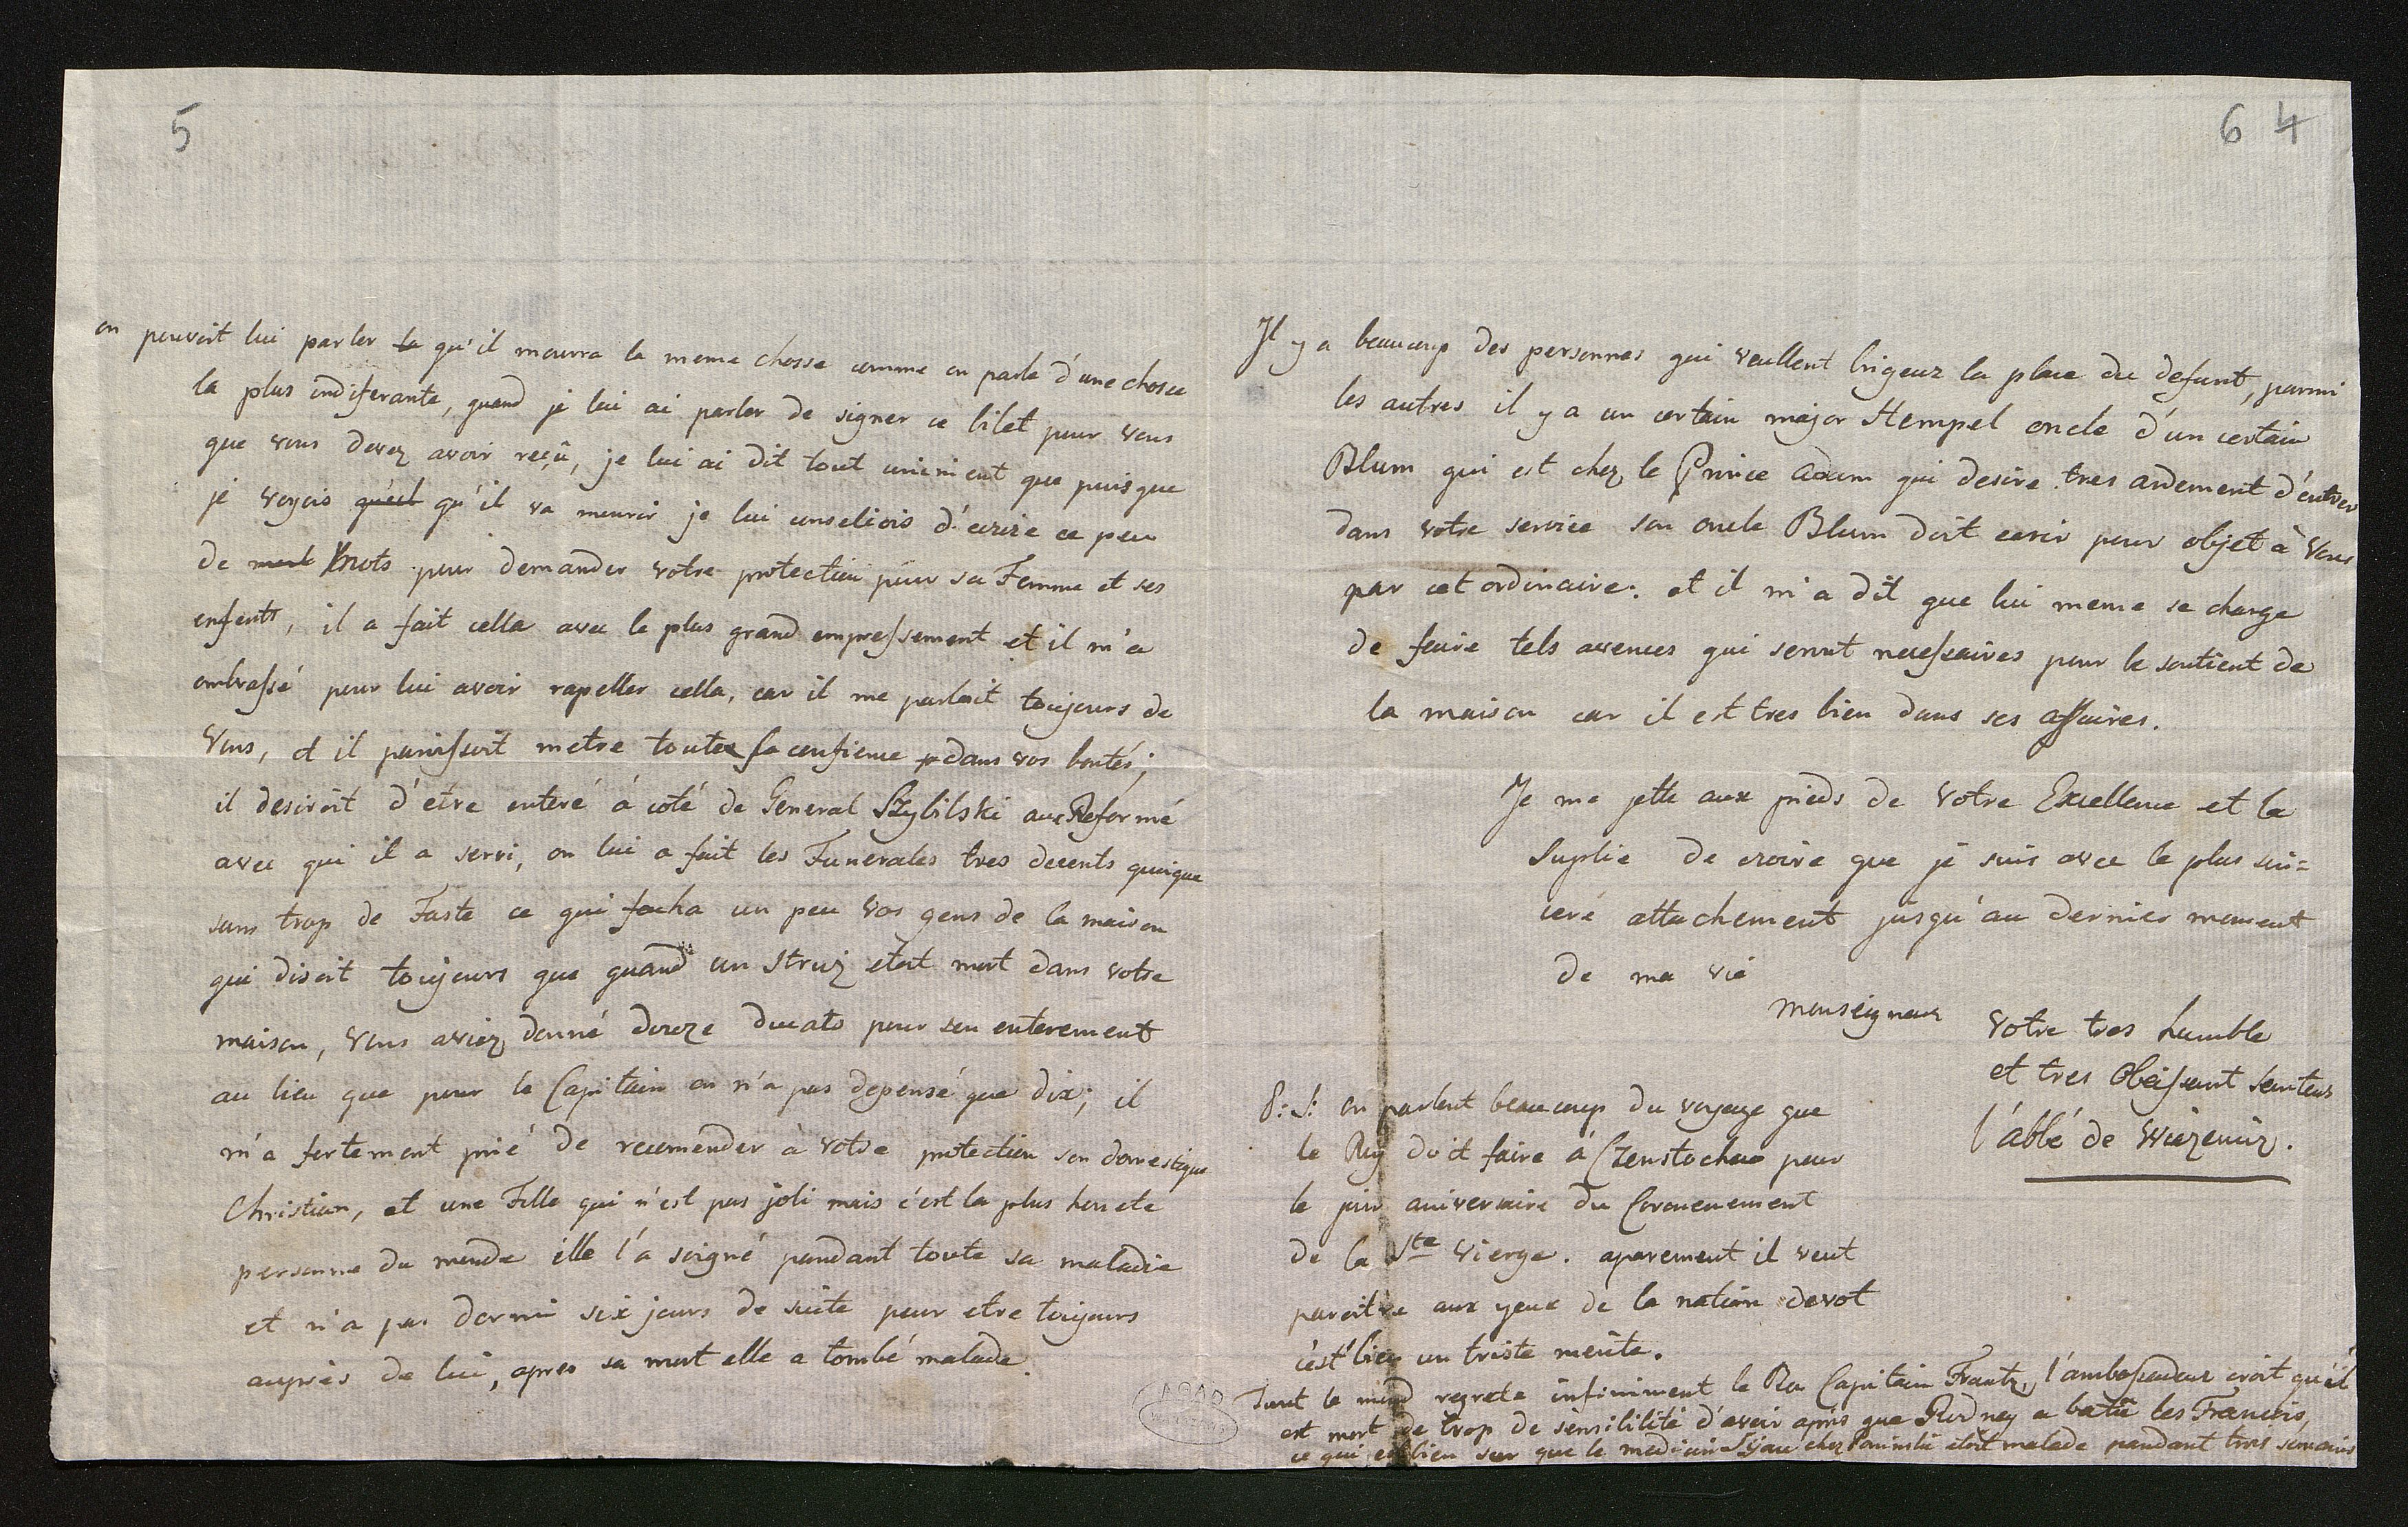 5
on pouvoit lui parler la qu'il mourra la meme chosse comme on parle d'une chosee
la plus indiferante, quand je lui ai parler de signer ce bilet pour vous
que vous devez avoir reçû, je lui ai dit tout uniment que puisque
je voyois qu'il va mourir je lui conseliois d'ecrire ce peu
de mots pour demander votre protection pour sa Femme et ses
enfents, il a fait cella avec le plus grand empressement et il m'a
embrassé pour lui avoir rapeller cella, car il me parloit toujours de
Vous, et il paroissoit metre toute sa confience dans vos bontés;
il desiroit d'etre enteré á coté de General Szybilski aux Reformé
avec qui il a servi, on lui a fait les Funerales tres decents quoique
sans trop de Faste ce qui facha un peu vos gens de la maison
qui disoit toujours que quand un Struz etoit mort dans votre
maison, vous aviez donné douze ducats pour son enterement
au lieu que pour le Capitain on n'a pas depensé que dix; il
m'a fortement prié de recomender à votre protection son domestique
Christian, et une Fille qui n'est pas joli mais c'est la plus honete
personne du monde elle l'a soigné pandant toute sa maladie
et n'a pas dormi six jours de suite pour etre toujours
auprès de lui, apres sa mort elle a tombé malade.
6 4
Il y a beaucoup des personnes qui veullent brigeur la place du defunt, parmi
les autres il y a un certain major Hempel oncle d'un certain
Blum qui est chez le Prince Adam qui desire tres ardement d'entrer
dans votre service son oncle Blum doit ecrir pour objet à Vous
par cet ordinaire. et il m'a dit que lui meme se charge
de faire tels avences qui seront necessaires pour le soutient de
la maison car il est tres bien dans ses affaires.
Je me jette aux pieds de Votre Excellence et la
Suplie de croire que je suis avec le plus sin=
ceré attachement jusqu'au dernier moment
de ma vie
Monseigneur
Votre tres humble
et tres obeissant serviteur
l'abbé de
P: S: on parlent beaucoup du voyage que
le Roy doit faire á Czenstochow pour
le jour aniversaire du Coronnement
de la Ste Vierge. aparement il veut
paroitre aux yeux de la nation devot
c'est bien un triste merite.
Tout le mond regrete infiniment le Capitain Frantz, l'ambassadeur croit qu'il
est mort de trop de sensibilité d'avoir apris que Rodney a batû les Francois,
ce qui est bien sur que le medicin chez Poninski etoit malade pandant trois semains
AGAD
WARSZAWA